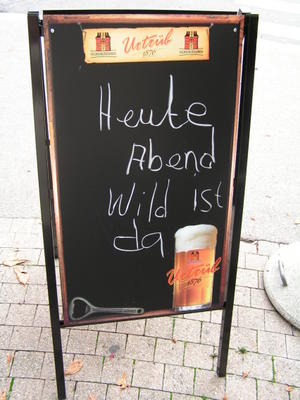 Uetrüb
1876
Heute
Abend
Wild ist
da
Uetrüb
1876